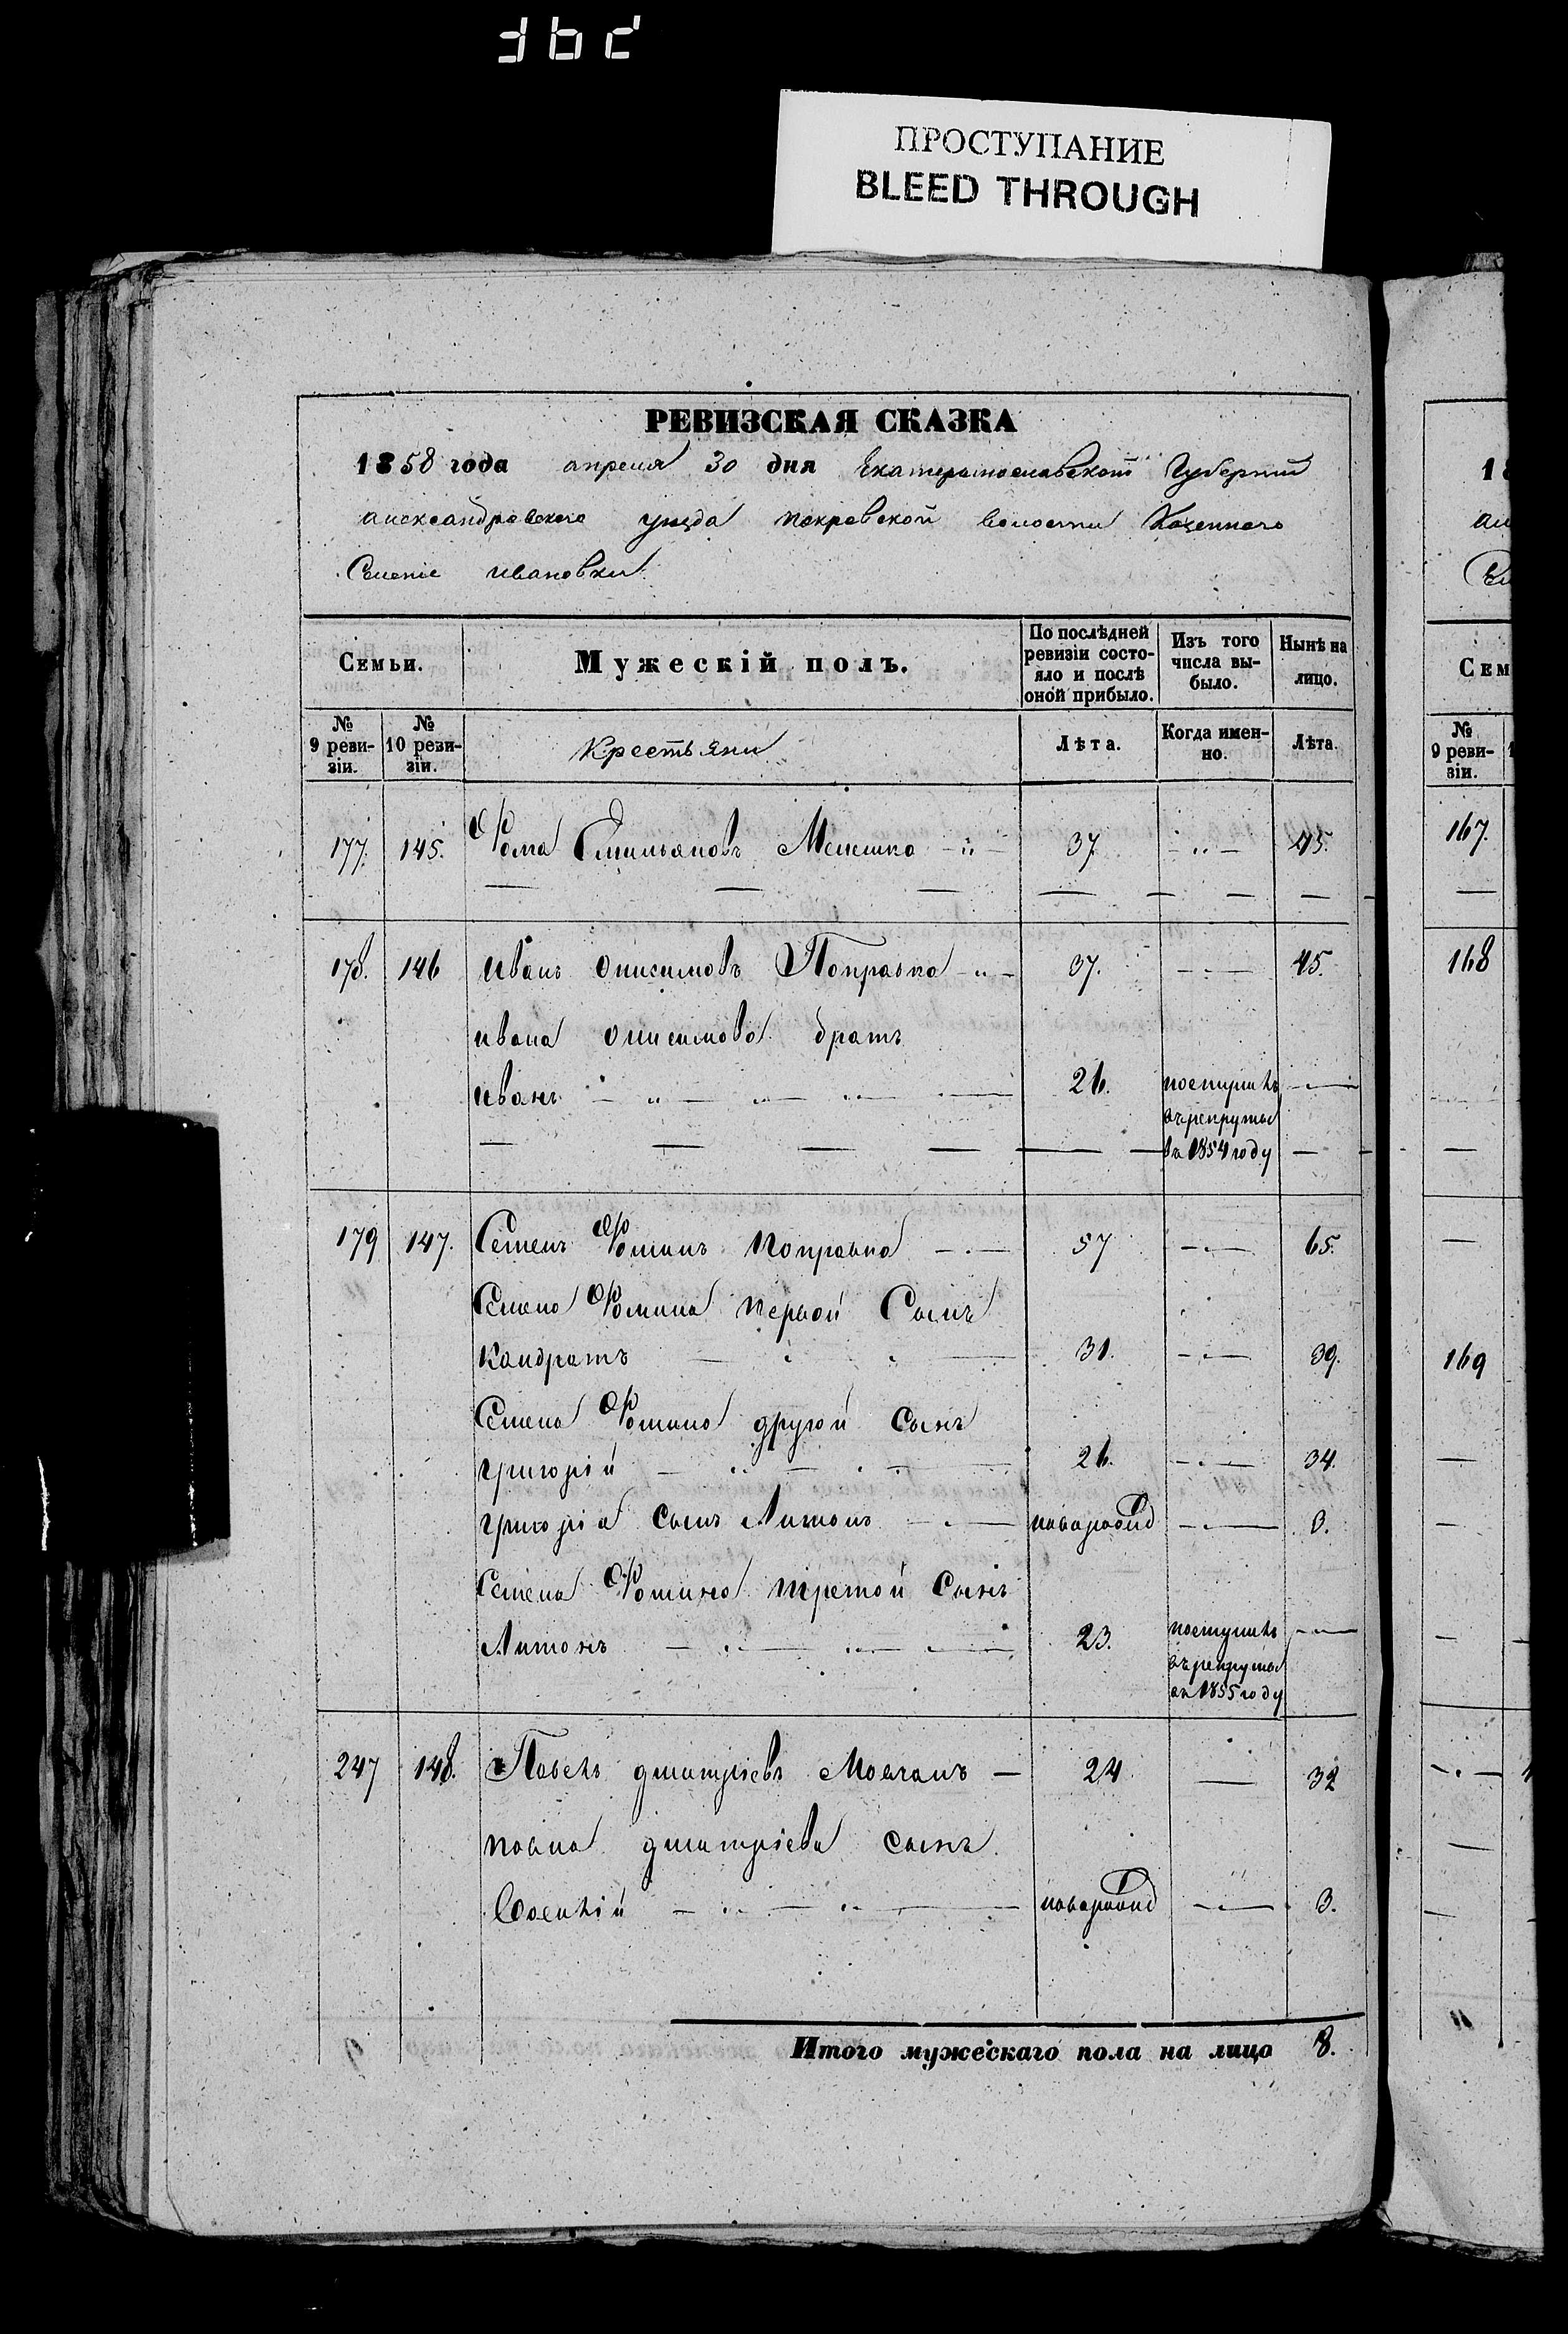 ПРОСТУПАНИЕ
BLEED THROUGH
РЕВИЗСКАЯ СКАЗКА
1858 года апреля 30 дня Екатеринославской Губернии
александровского уезда покровской волости Казенного
Селение ивановки
Семьи.
Мужескій полъ.
По послѣдней ревизіи состояло и послѣ оной прибыло.
Изъ того числа выбыло.
Нынѣ на лицо.
№ 9 ревизіи.
№ 10 ревизіи.
Крестьяни
Лѣта.
Когда именно.
Лѣта.
177. 145. Фома Емильяновъ Мелешко 37 45.
178. 146 иванъ онисимовъ Поправка 37. 45.
ивана онисимова братъ
иванъ 26. поступилъ
въ рекруты
въ 1854 году
179 147. Семенъ Фоминъ Поправка 57 65.
Семена Фомина первой Сынъ
Кандратъ 31. 39.
Семена Фомина другой Сынъ
григорій 26. 34.
григорія сынъ Антонъ новорожд 3.
Семена Фомина третой Сынъ
Антонъ 23. поступилъ
въ рекруты
въ 1855 году
247 148. Павелъ дмитріевъ Мовчанъ 24 32
павла дмитріева сынъ
новорожд 3.
Итого мужескаго пола на лицо 8.
18
Сем
№
9 ревизіи.
167.
168
169